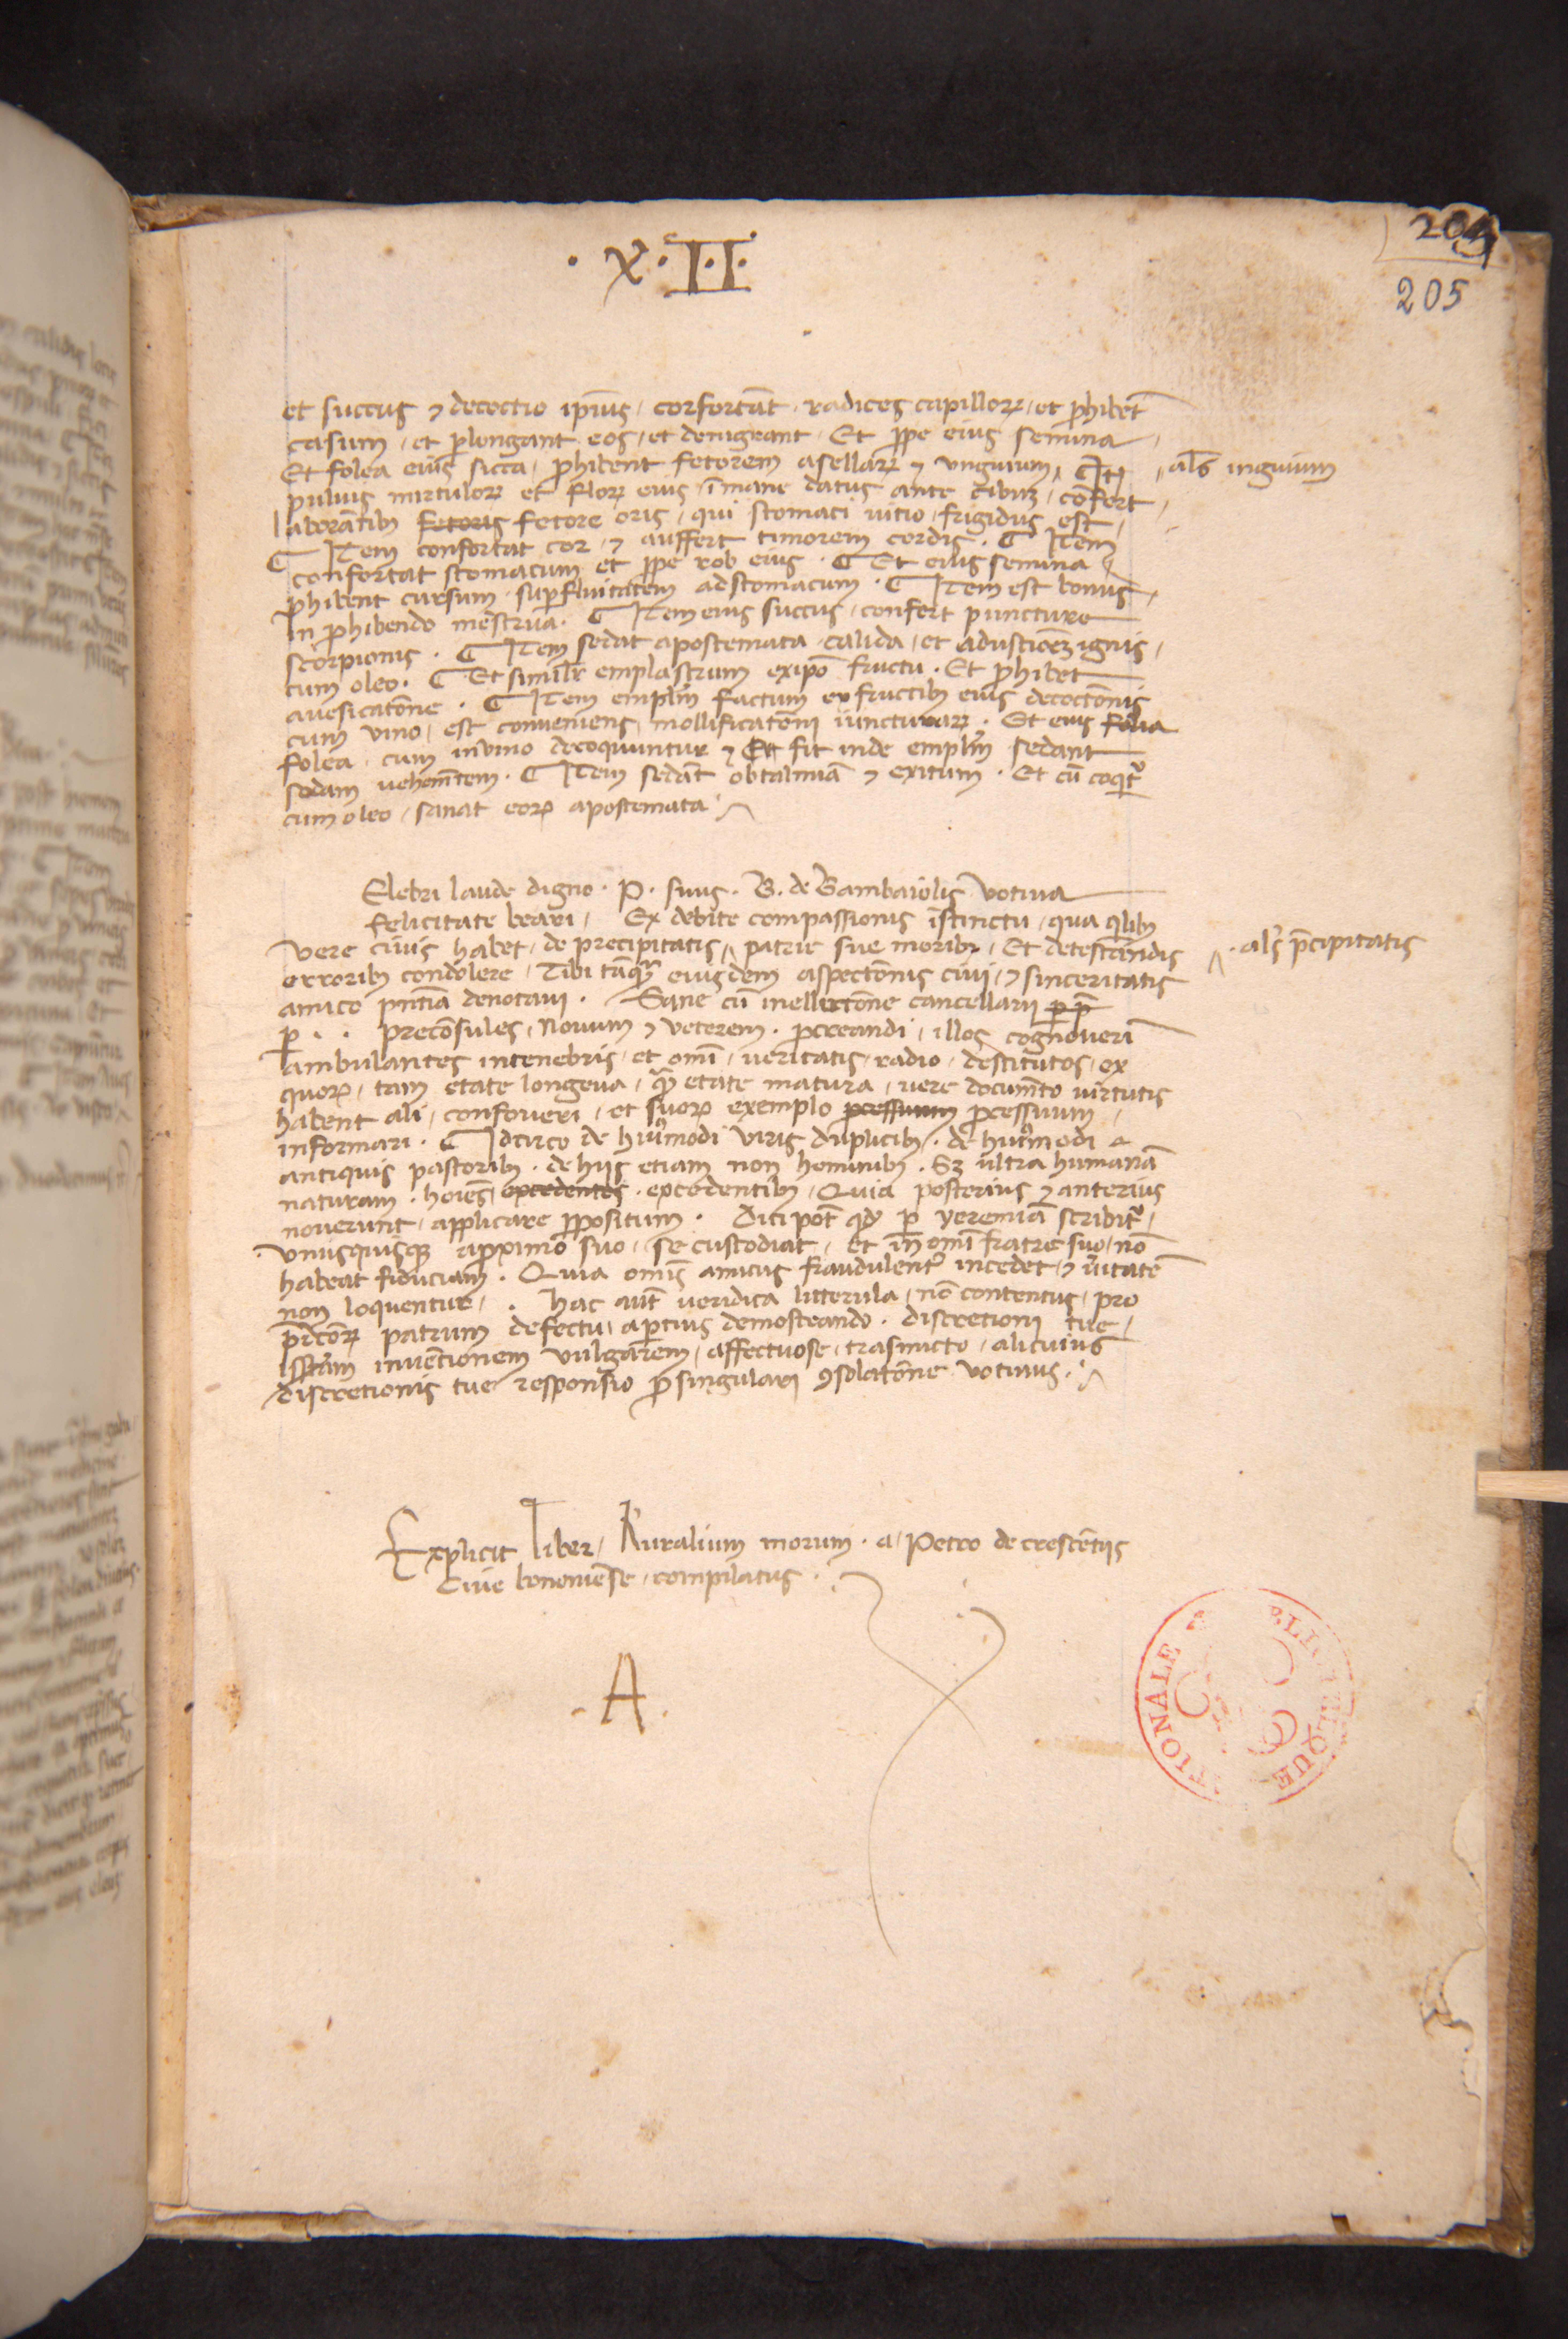 . X . II .
204
205
et succus ⁊ decoctio ip̄ius / confortāt radices capilloꝝ / et ꝓhibēt
casum / et ꝓlongant eos / et denigrant . Et ꝓpe eius semina
Et folea eius sicca / ꝓhibent fetorem asellaꝝ ⁊ unguium / ¶ It᷒ / al̄s inguium
puluis mirtuloꝝ et floꝝ eius ī mane datus ante cibuꝫ / cōfert
laborātibꝰ fetoris fetore oris / qui stomaci uitio / frigidus est /
¶ Item confortat cor / ⁊ auffert timorem cordis . ¶ Item
confortat stomacum et ꝓpe rob eius . ¶ Et eius semina
ꝓhibent cursum suꝑfluitatem ad stomacum . ¶ Item est bonus /
In ꝓhibendo mēstrua . ¶ Item eius succus / confert puncture
scorpionis . ¶ Item sedat apostemata calida / et adustiōeꝫ ignis /
cum oleo . ¶ Et simil̄r emplastrum ex ip̄o fructu . Et ꝓhibet
auesicatōne . ¶ Item emplm̄ factum ex fructibꝰ eius decoctōnis
cum vino / est conueniens mollificatōni iuncturaꝝ . Et eius folia
folea cum in vino decoquuntur ⁊ Ex fit inde emplm̄ sedant
sodam uehemētem . ¶ Item sedāt obtalmiā ⁊ exitum . Et cū coqͥtᷣ
cum oleo / sanat eoꝝ apostemata
Elebri laude digno . P . suus . B . de Bambaiolis votiua
felicitate beari / Ex debite compassionis īstinctu / qua qͥlibꝫ
vere ciuis habet / de precipitatis patrie sue moribꝰ / Et detestandis . al̄s p̄cipitatis
erroribꝰ condolere / Tibi tāqꝫ eiusdem aspectōnis ciui / ⁊ sinceritatis
amico pn̄tiā denotaui . Sane cū inellectōne cancellarii ꝑ p̄
ꝑ . . preconsules / Nouum ⁊ veterem . ꝓcreandi / illos cognoueri
ambulantes in tenebris / et omī / ueritatis / radio / destitutos / ex
quoꝝ / tam etate longeua / qͣꝫ etate matura / uere documēto uirtutis
habent ali / confoueri / et suoꝝ exemplo ꝓcessiuum ꝓcessiuum /
informari . ¶ Idcirco de huiꝰmodi viris duplicibꝰ . de huiꝰmodi
antiquis pastoribꝰ . de hijs etiam non hominibꝰ . Sꝫ ultra humanā
naturam . hoīes excedentes . excedentibꝰ / Quia posterius ⁊ anterius
nouerunt / applicare ꝓpositum . Dici pōt qd̄ ꝑ yeremiā scribitᷣ /
vnusquisqꝫ a ꝓximo suo / se custodiat / et in omī fratre suo / nō
habeat fiduciam . Quia omīs amicus fraudulentᷣ incedet / ⁊ ūitatē
non loquentur / . hac aūt ueridica litterula / nō contentus / pro
p̄dcōꝝ patrum defectu / aꝑtius demostrando . discretioni tue /
istam inuētionem vulgarem / affectuose / trasmicto / alicuius
discretionis tue responsio ꝑ singulari ꝯsolatōne votiuus .
Explicit liber / Ruralium morum . a / Petro de crescētijs
Ciue bononiēse / compilatus .
. A .